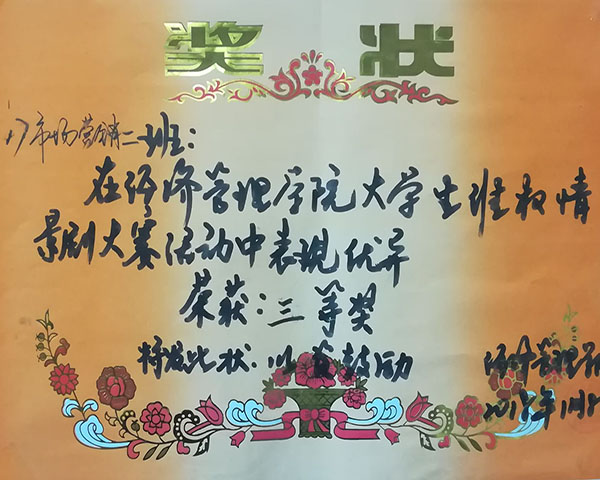 奖状
17市场营销二班:
在经济管理学院大学生班级情
景剧大赛活动中表现优异
荣获:三等奖
特发此状:以资鼓励
经济管理
2018年